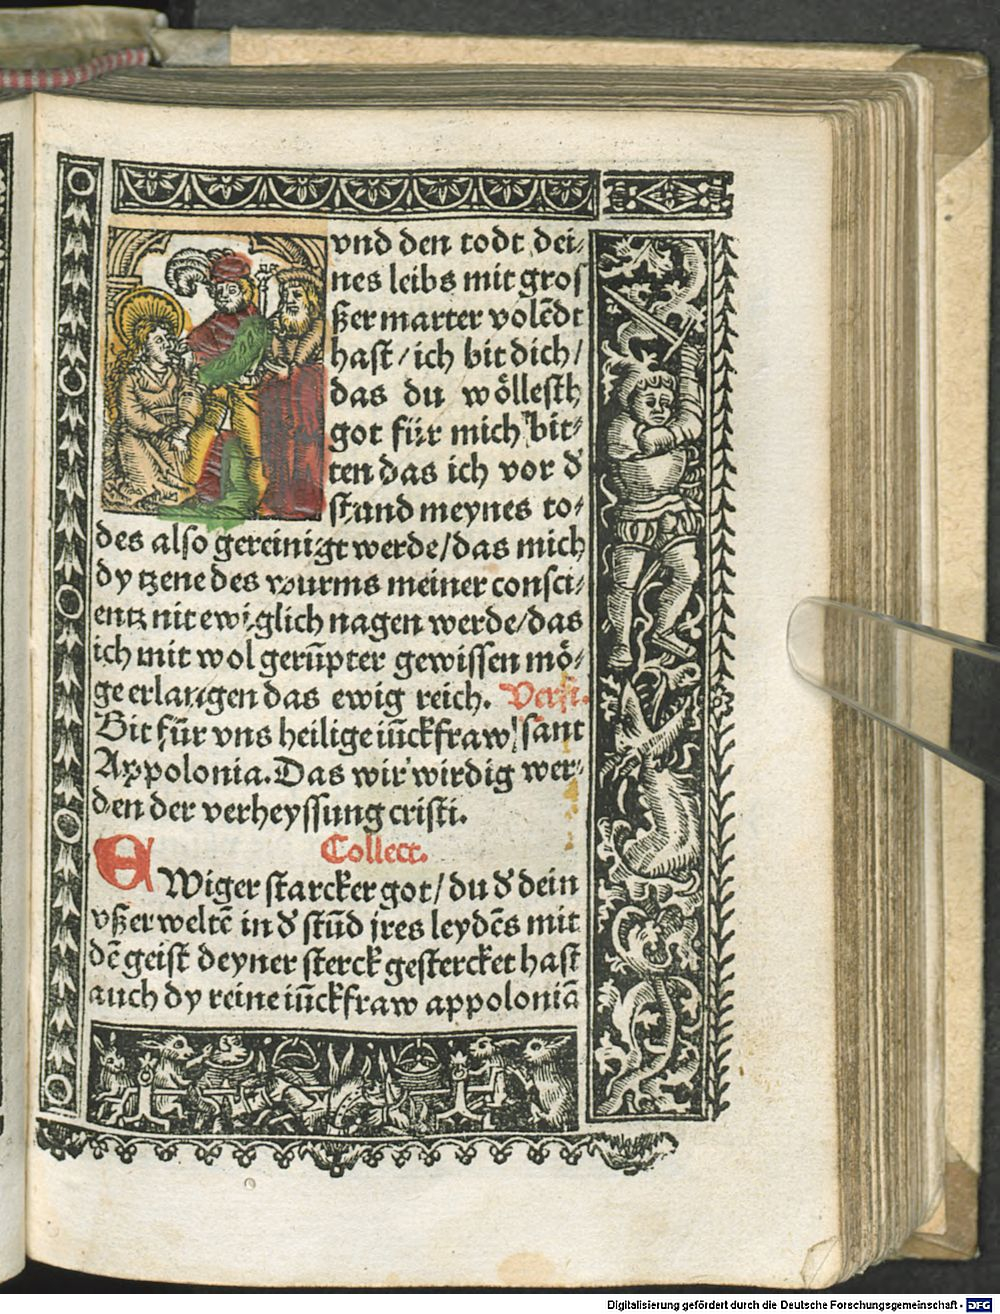 vnd den todt dei⸗
nes leibs mit gros
ßer marter volēdt
hast / ich bit dich /
das du wöllesth
got für mich bit⸗
ten das ich vor đ
stund meynes to⸗
des also gereinigt werde / das mich
dy tzene des wurms meiner consci⸗
entz nit ewiglich nagen werde / das
ich mit wol gerūpter gewissen mö⸗
ge erlangen das ewig reich. Versi.
Bit für vns heilige iūckfraw sant
Appolonia. Das wir wirdig wer⸗
den der verheyssung cristi.
Collect.
EWiger starcker got / du đ dein
vßerweltē in đ stūd jres leydēs mit
dē geist deyner sterck gestercket hast
auch dy reine iūckfraw appoloniā
Digitalisierung gefördert durch die Deutsche Forschungsgemeinschaft - DFG